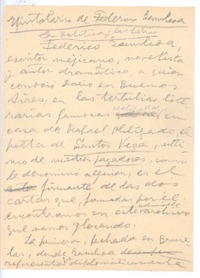 Epistolario de Federico Gamboa
La política y las letras
Federico Gamboa,
escritor mejicano, novelista
y autor dramático, a quien
conocí dio en Buenos
Aires, en las tertulias lite-
rarias famosas
casa de Rafael Obligado, el
poeta de Santos Vega, últi-
mo de nuestros payadores, como
lo denominó alguien, es el
firmante de las dos
cartas que, firmadas por él
encontramos en el archivo
que vamos glosando.
La primera, fechada en Bruse-
las, donde Gamboa
representaba diplomáticamente